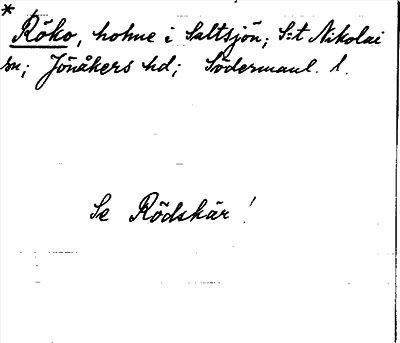 * Röko, holme i Saltsjön; S:t Nikolai
sn; Jönåkers hd; Södermanl. l.
Se Rödskär!